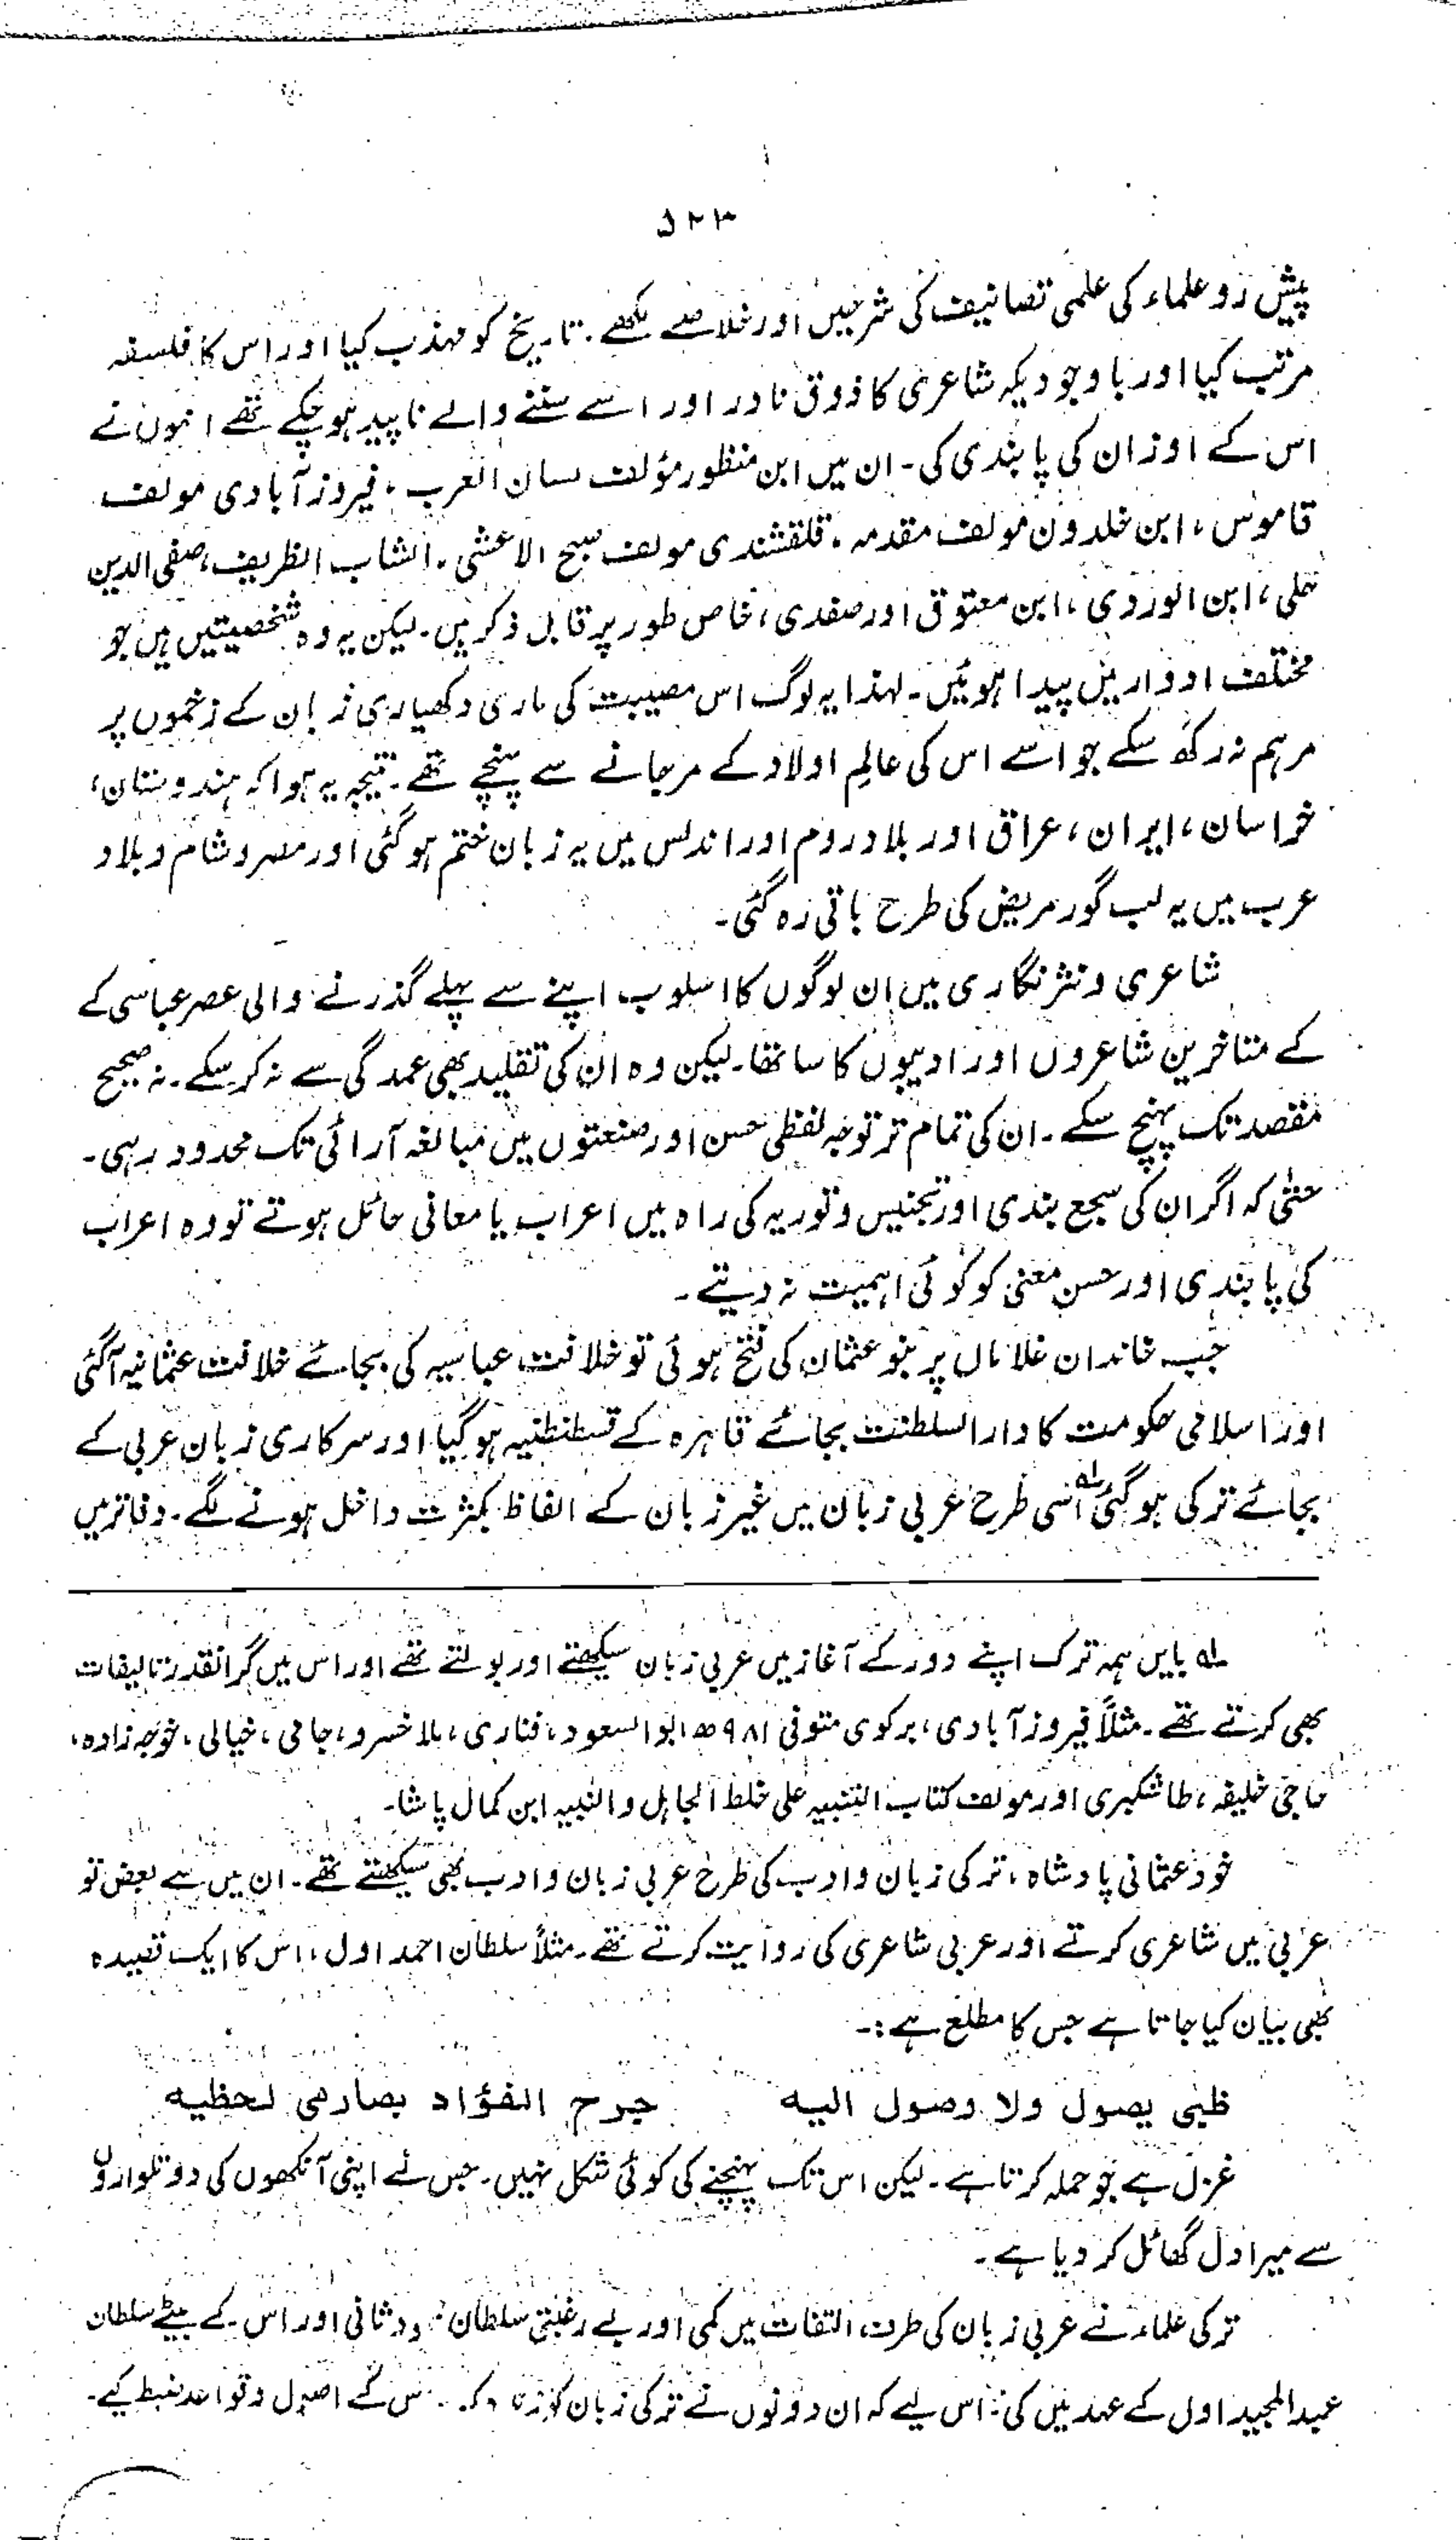 ۵۲۳
پیش رو علماء کی علمی تصانیف کی شرحیں اور خلاصے لکھے. تاریخ کو مہذب کیا اور اس کا فلسفہ
مرتب کیا اور باوجودیکہ شاعری کا ذوق نادر اور اسے سننے والے ناپید ہو چکے تھے انہوں نے
اس کے اوزان کی پابندی کی۔ ان میں ابن منظور مؤلف لسان العرب، فیروز آبادی مولف
قاموس، ابن خلدون مولف مقدمہ، قلقشندی مولف صبح الاعشی، الشاب الظریف، صفی الدین
حلی، ابن الوردی، ابن معتوق اور صفدی، خاص طور پر قابل ذکر ہیں۔ لیکن یہ وہ شخصیتیں ہیں جو
مختلف ادوار میں پیدا ہوئیں۔ لہذا یہ لوگ اس مصیبت کی ماری دکھیاری زبان کے زخموں پر
مرہم نہ رکھ سکے جو اسے اس کی عالم اولاد کے مر جانے سے پہنچے تھے۔ نتیجہ یہ ہوا کہ ہندوستان،
خراسان، ایران، عراق اور بلاد روم اور اندلس میں یہ زبان ختم ہو گئی اور مصر و شام و بلاد
عرب میں یہ لب گور مریض کی طرح باقی رہ گئی۔
شاعری و نثر نگاری میں ان لوگوں کا اسلوب اپنے سے پہلے گذرنے والی عصر عباسی کے
کے متاخرین شاعروں اور ادیبوں کا سا تھا۔ لیکن وہ ان کی تقلید بھی عمدگی سے نہ کر سکے۔ نہ صحیح
مقصد تک پہنچ سکے۔ ان کی تمام تر توجہ لفظی حسن اور صنعتوں میں مبالغہ آرائی تک محدود رہی۔
حتیٰ کہ اگر ان کی سجع بندی اور تجنیس و توریہ کی راہ میں اعراب یا معانی حائل ہوتے تو وہ اعراب
کی پابندی اور حسن معنی کو کوئی اہمیت نہ دیتے۔
جب خاندان غلاماں پر بنو عثمان کی فتح ہوئی تو خلافت عباسیہ کی بجائے خلافت عثمانیہ آگئی
اور اسلامی حکومت کا دارالسلطنت بجائے قاہرہ کے قسطنطنیہ ہو گیا اور سرکاری زبان عربی کے
بجائے ترکی ہو گئی لہ اسی طرح عربی زبان میں غیر زبان کے الفاظ بکثرت داخل ہونے لگے۔ دفاتر میں
لہ بایں ہمہ ترک اپنے دور کے آغاز میں عربی زبان سیکھتے اور بولتے تھے اور اس میں گرانقدر تالیفات
بھی کرتے تھے۔ مثلاً فیروز آبادی، برکوی متوفی ۹۸۱ھ، ابوالسعود، فناری، ملا خسرو، جامی، خیالی، خوجہ زادہ،
حاجی خلیفہ، طاشکبری اور مولف کتاب التنبیہ علی غلط الجاہل والنبیہ ابن کمال پاشا۔
خود عثمانی پادشاہ، ترکی زبان و ادب کی طرح عربی زبان و ادب بھی سیکھتے تھے۔ ان میں سے بعض تو
عربی میں شاعری کرتے اور عربی شاعری کی روایت کرتے تھے۔ مثلاً سلطان احمد اول، اس کا ایک قصیدہ
بھی بیان کیا جاتا ہے جس کا مطلع ہے:۔
ظبی یصول ولا وصول الیه جرح الفؤاد بصارمی لحظیه
غزل ہے جو حملہ کرتا ہے۔ لیکن اس تک پہنچنے کی کوئی شکل نہیں۔ جس نے اپنی آنکھوں کی دو تلواروں
سے میرا دل گھائل کر دیا ہے۔
ترکی علماء نے عربی زبان کی طرف التفات میں کمی اور بے رغبتی سلطان ود ثانی اور اس کے بیٹے سلطان
عبدالمجید اول کے عہد میں کی۔ اس لیے کہ ان دونوں نے ترکی زبان کو کے اصول و قواعد ضبط کیے۔